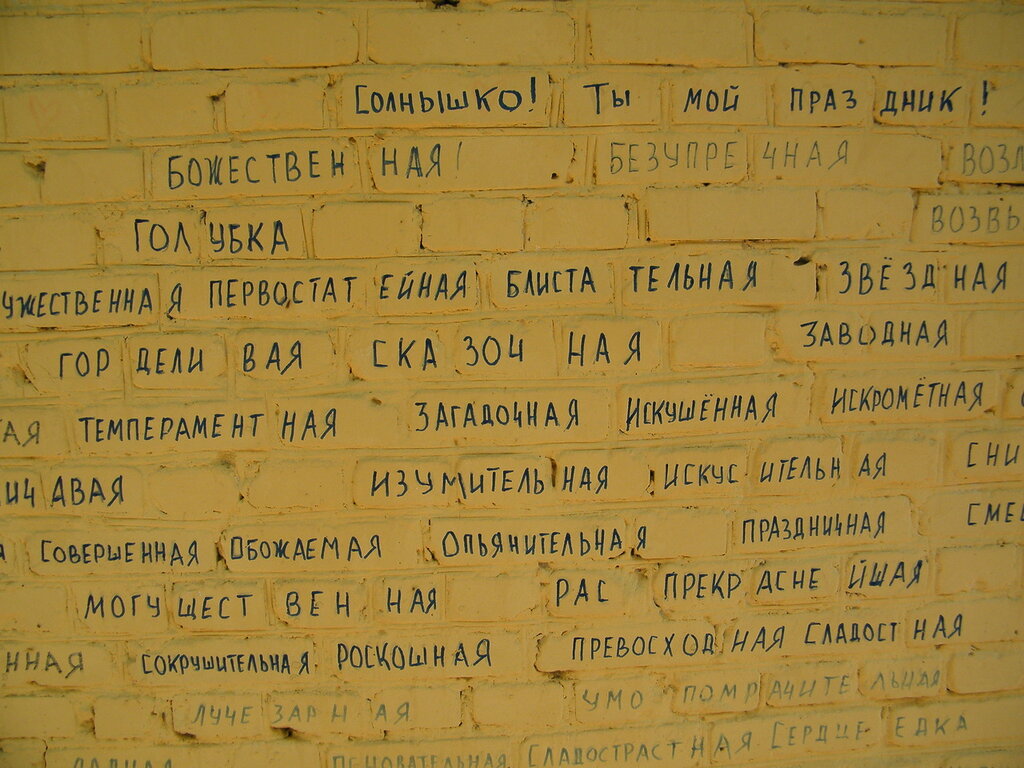 Солнышко! Ты мой праздник!
БОЖЕСТВЕННАЯ! БЕЗУПРЕЧНАЯ
ГОЛУБКА
ПЕРВОСТАТЕЙНАЯ БЛИСТАТЕЛЬНАЯ ЗВЁЗДНАЯ
ГОРДЕЛИВАЯ СКАЗОЧНАЯ ЗАВОДНАЯ
ТЕМПЕРАМЕНТНАЯ ЗАГАДОЧНАЯ ИСКУШЁННАЯ ИСКРОМЁТНАЯ
ИЗУМИТЕЛЬНАЯ ИСКУСИТЕЛЬНАЯ
СОВЕРШЕННАЯ ОБОЖАЕМАЯ ОПЬЯНИТЕЛЬНАЯ ПРАЗДНИЧНАЯ
МОГУЩЕСТВЕННАЯ РАСПРЕКРАСНЕЙШАЯ
СОКРУШИТЕЛЬНАЯ РОСКОШНАЯ ПРЕВОСХОДНАЯ СЛАДОСТНАЯ
ЛУЧЕЗАРНАЯ УМОПОМРАЧИТЕЛЬНАЯ
СЛАДОСТРАСТНАЯ СЕРДЦЕЕДКА